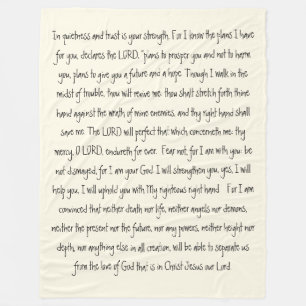 In quietness and trust is your strength. For I know the plans I have
for you, declares the LORD, "plans to prosper you and not to harm
you, plans to give you a future and a hope. Though I walk in the
midst of trouble, thou will revive me: thou shalt stretch forth thine
hand against the wrath of mine enemies, and thy right hand shall
save me. The LORD will perfect that which concerneth me: thy
mercy, O LORD, endureth for ever. Fear not, for I am with you; be
not dismayed, for I am your God. I will strengthen you, yes, I will
help you, I will uphold you with My righteous right hand. For I am
convinced that neither death nor life, neither angels nor demons,
neither the present nor the future, nor any powers, neither height nor
depth, nor anything else in all creation, will be able to separate us
from the love of God that is in Christ Jesus our Lord.